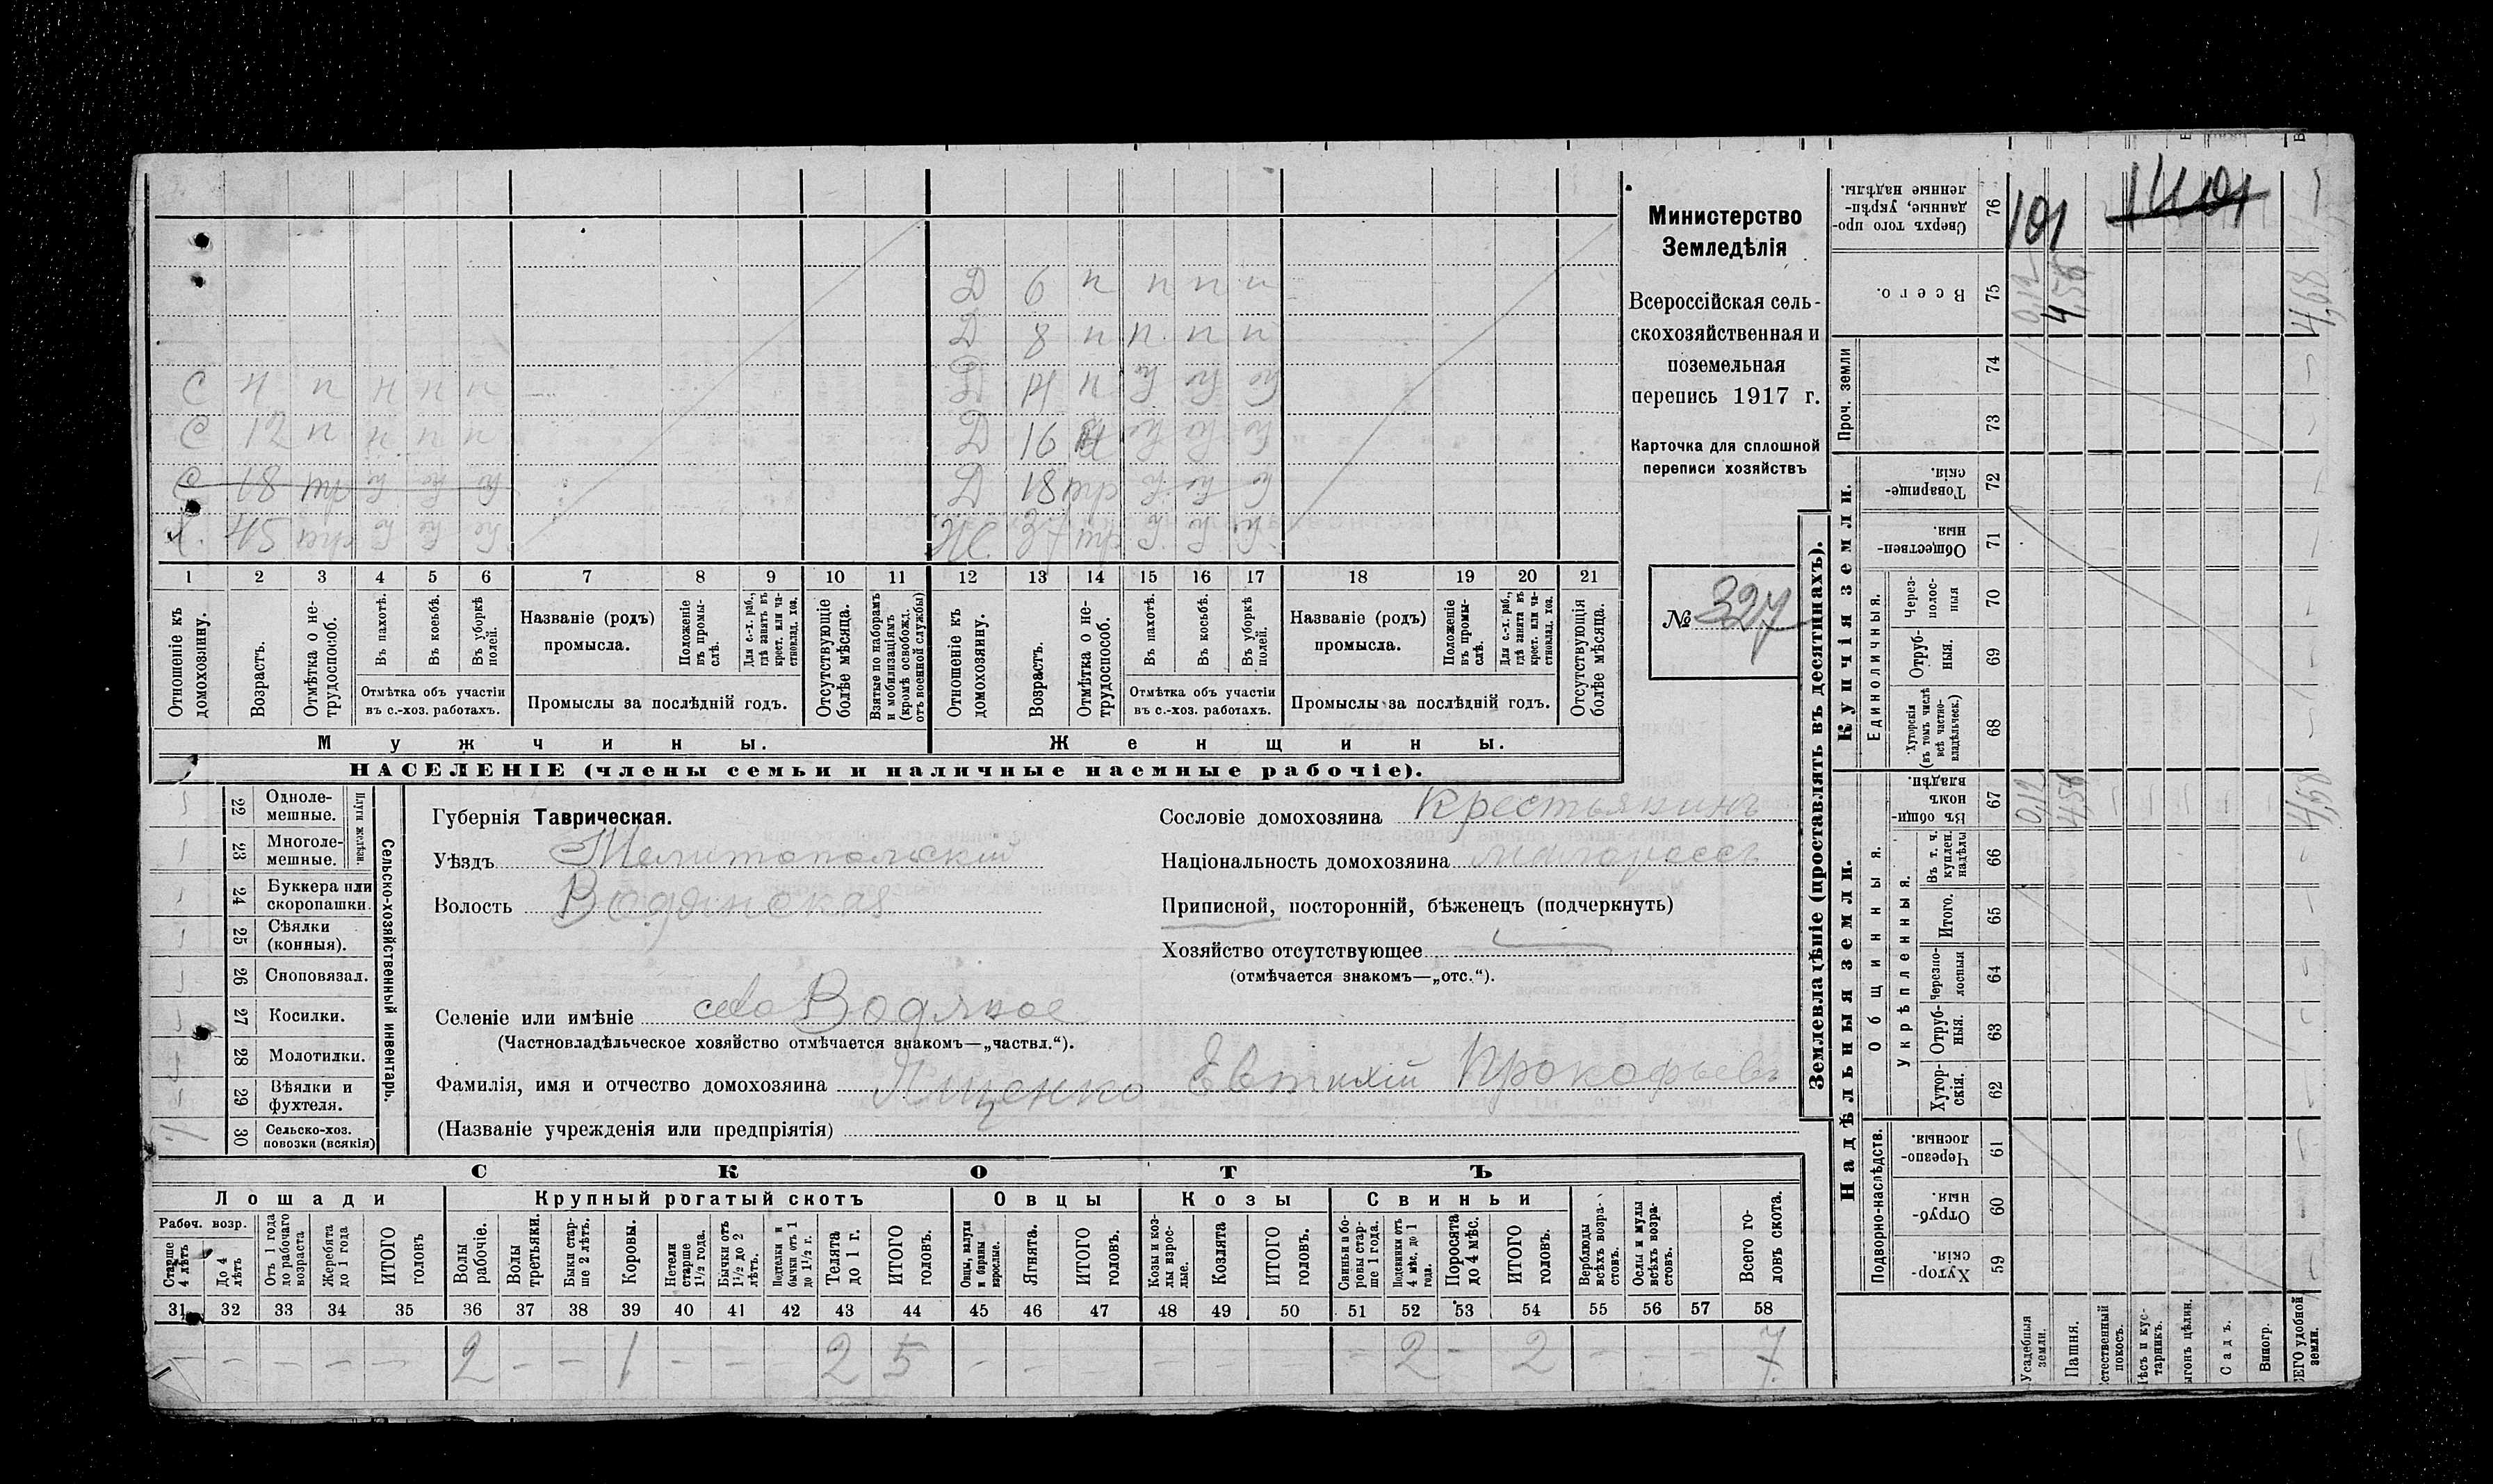 Министерство
Земледѣлія
Всероссійская сель-
скохозяйственная и
поземельная
перепись 1917 г.
Карточка для сплошной
переписи хозяйствъ
№ 327
Д 6 п п п п
Д 8 п п п п
С 12 п п п п
Д 16
С 18
Д 18
1 2 3 4 5 6 7 8 9 10 11 12 13 14 15 16 17 18 19 20 21
Отношеніе къ домохозяину.
Возрастъ.
Отмѣтка о не-трудоспособ.
Въ пахотѣ.
Въ косьбѣ.
Въ уборкѣ полей.
Отмѣтка объ участіи
въ с.-хоз. работахъ.
Названіе (родъ)
промысла.
Положеніе въ промы-слѣ.
Для с.-х. раб., гдѣ занятъ въ крест. или ча-стновлад. хоз.
Промыслы за послѣдній годъ.
Отсутствующіе болѣе мѣсяца.
Взятые по наборамъ и мобилизаціямъ (кромѣ освобожд. отъ военной службы)
Отношеніе къ домохозяину.
Возрастъ.
Отмѣтка о не-трудоспособ.
Въ пахотѣ.
Въ косьбѣ.
Въ уборкѣ полей.
Отмѣтка объ участіи
въ с.-хоз. работахъ.
Названіе (родъ)
промысла.
Положеніе въ промы-слѣ.
Для с.-х. раб., гдѣ занята въ крест. или ча-стновлад. хоз.
Промыслы за послѣдній годъ.
Отсутствующія болѣе мѣсяца.
Мужчины.
Женщины.
НАСЕЛЕНІЕ (члены семьи и наличные наемные рабочіе).
Сельско-хозяйственный инвентарь.
Плуги желѣзн.
22 Одноле-мешные.
23 Многоле-мешные.
24 Буккера или скоропашки.
25 Сѣялки (конныя).
26 Сноповязал.
27 Косилки.
28 Молотилки.
29 Вѣялки и фухтеля.
30 Сельско-хоз. повозки (всякія)
Губернія Таврическая.
Уѣздъ Мелитопольскій
Волость Водянская
Сословіе домохозяина Крестьянинъ
Національность домохозяина малороссъ
Приписной, посторонній, бѣженецъ (подчеркнуть)
Хозяйство отсутствующее
(отмѣчается знакомъ—„отс.“).
Селеніе или имѣніе село Водяное
(Частновладѣльческое хозяйство отмѣчается знакомъ—„частвл.“).
Фамилія, имя и отчество домохозяина Ященко Евтихій Прокофьевъ
(Названіе учрежденія или предпріятія)
СКОТЪ
Лошади
Крупный рогатый скотъ
Овцы
Козы
Свиньи
Рабоч. возр.
Старше 4 лѣтъ
До 4 лѣтъ
Отъ 1 года до рабочаго возраста
Жеребята до 1 года
ИТОГО головъ
Волы рабочіе.
Волы третьяки.
Быки стар-ше 2 лѣтъ.
Коровы.
Нетели старше 1½ года.
Бычки отъ 1½ до 2 лѣтъ.
Подтелки и бычки отъ 1 до 1½ г.
Телята до 1 г.
ИТОГО головъ.
Овцы, валухи и бараны взрослые.
Ягнята.
ИТОГО головъ.
Козы и коз-лы взрос-лые.
Козлята
ИТОГО головъ.
Свиньи и бо-ровы стар-ше 1 года.
Подсвинки отъ 4 мѣс. до 1 года.
Поросята до 4 мѣс.
ИТОГО головъ.
Верблюды всѣхъ возра-стовъ.
Ослы и мулы всѣхъ возра-стовъ.
Всего го-ловъ скота.
31 32 33 34 35 36 37 38 39 40 41 42 43 44 45 46 47 48 49 50 51 52 53 54 55 56 57 58
– – – – – 2 – – 1 – – – 2 5 – – – – – – – 2 – 2 – – – 7
Землевладѣніе (проставлять въ десятинахъ).
Надѣльныя земли.
Купчія земли.
Проч. земли
Подворно-наслѣдств.
Общинныя.
Укрѣпленныя.
Единоличныя.
76 Сверхъ того про-данные, укрѣп-ленные надѣлы.
75 Всего.
74
73
72 Товарище-скія.
71 Обществен-ныя.
70 Через-полос-ныя
69 Отруб-ныя.
68 Хуторскія (въ томъ числѣ всѣ частно-владѣльческ.)
67 Въ общин-номъ владѣн.
66 Въ т. ч. куплен. надѣлы
65 Итого.
64 Черезпо-лосныя
63 Отруб-ныя.
62 Хутор-скія.
61 Черезпо-лосныя.
60 Отруб-ныя.
59 Хутор-скія.
101
0,12 4,56 4,68
0,12 4,56 4,68
Усадебныя земли.
Пашня.
Сад ъ.
Виногр.